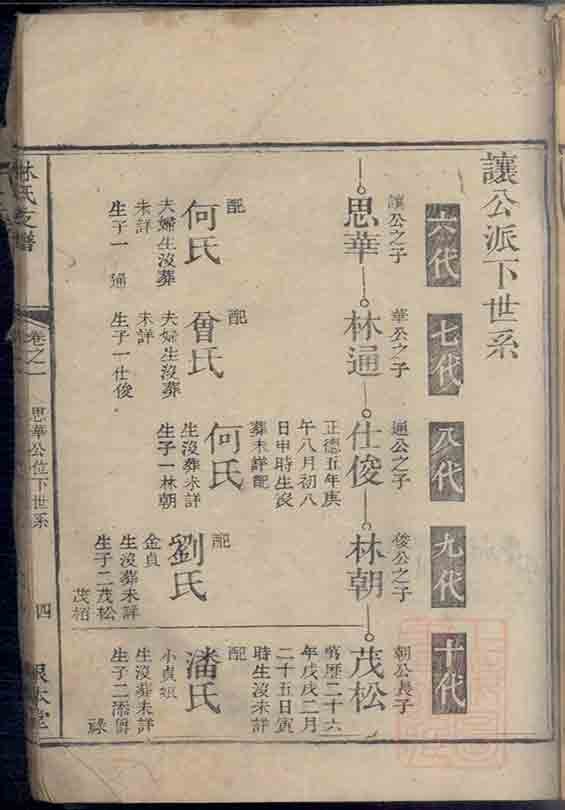 讓公派下世系
六代
七代
八代
九代
十代
讓公之子
思華
配
何氏
夫婦生沒葬
未詳
生子一 通
華公之子
林通
配
曾氏
夫婦生沒葬
未詳
生子一仕俊
通公之子
仕俊
正德五年庚
午八月初八
日申時生沒
葬未詳配
何氏
生沒葬未詳
生子一林朝
俊公之子
林朝
配
劉氏
金貞
生沒葬未詳
生子二茂松
茂栢
朝公長子
茂松
萬歷二十六
年戊戌二月
二十五日寅
時生沒未詳
配
潘氏
小貞娘
生沒葬未詳
生子二添爵
祿
林氏支譜
卷之一
思華公位下世系
四